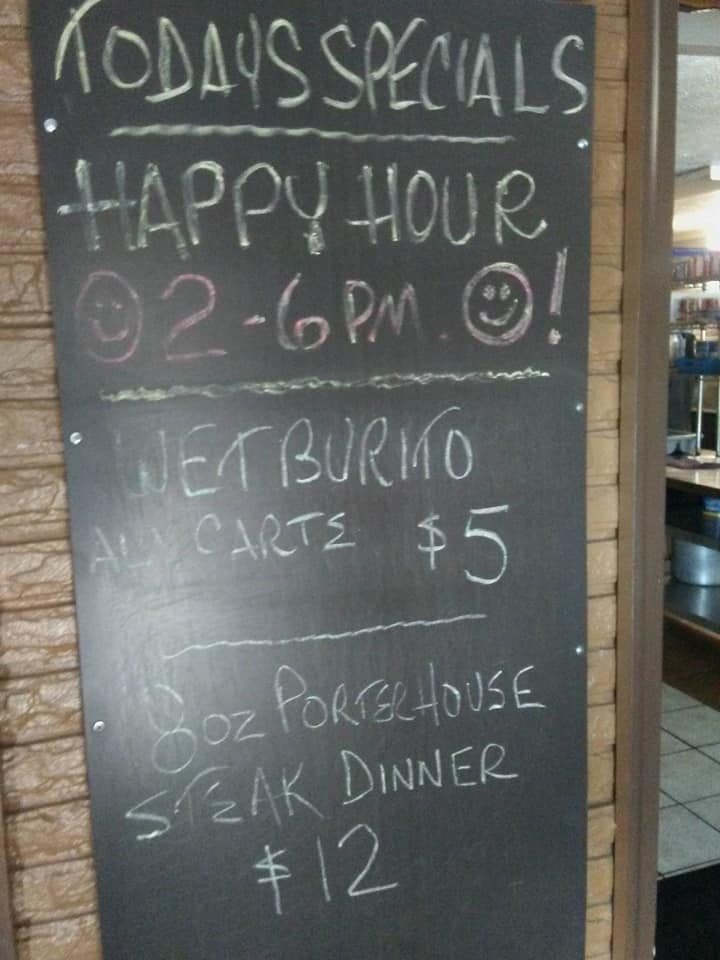 TODAYS SPECIALS
HAPPY HOUR
2-6 PM. !
WET BURITO
ALA CARTE $5
8oz PORTERHOUSE
STEAK DINNER
$12